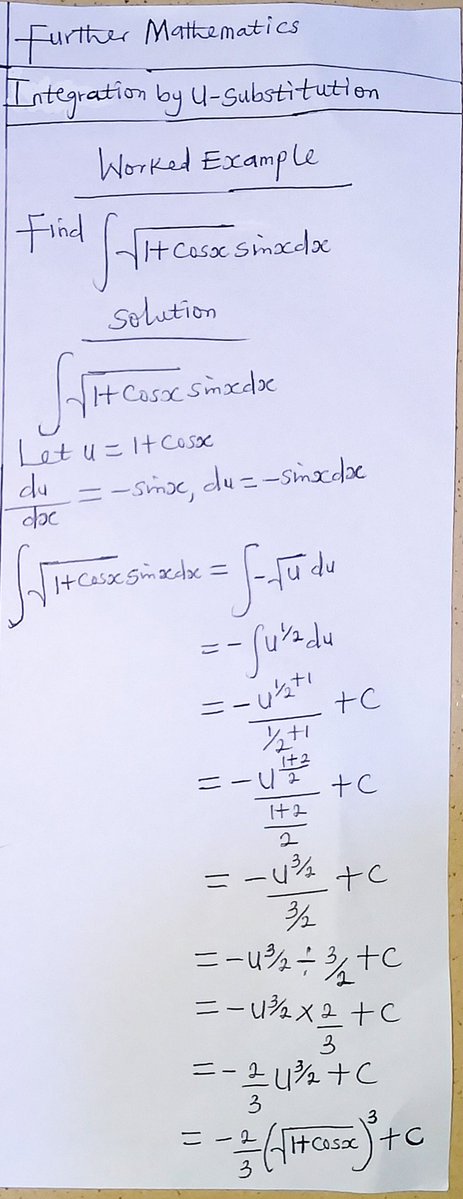 Further Mathematics
Integration by U-Substitution
Worked Example
Find ∫√(1+cosx) sinxdx
Solution
∫√(1+cosx) sinxdx
Let u = 1+cosx
du/dx = -sinx, du = -sinxdx
∫√(1+cosx) sinxdx = ∫-√u du
= -∫u^(1/2) du
= -u^(1/2+1)/(1/2+1) + C
= -u^((1+2)/2)/((1+2)/2) + C
= -u^(3/2)/(3/2) + C
= -u^(3/2) ÷ 3/2 + C
= -u^(3/2) × 2/3 + C
= -2/3 u^(3/2) + C
= -2/3 (√(1+cosx))^3 + C